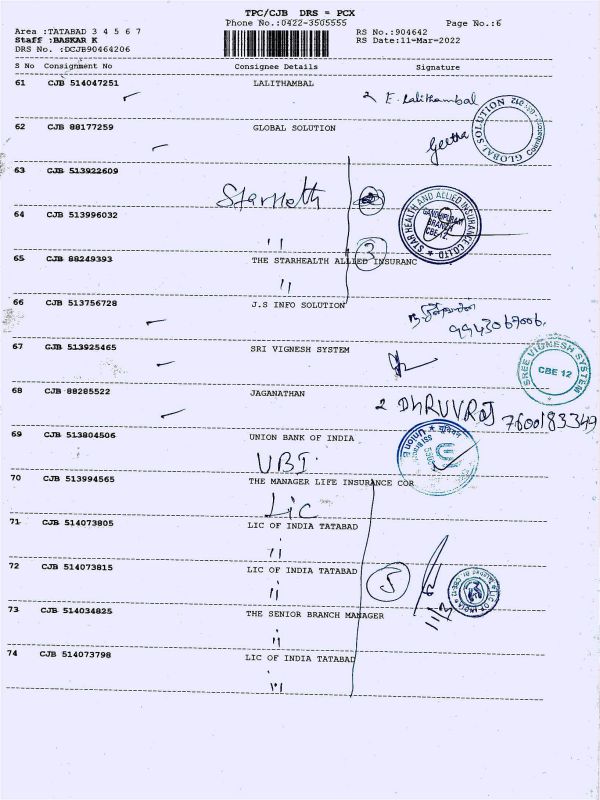 TPC/CJB DRS = PCX
Phone No.:0422-3505555
Page No.:6
Area :TATABAD 3 4 5 6 7
Staff :BASKAR K
DRS No. :DCJB90464206
RS No.:904642
RS Date:11-Mar-2022
S No Consignment No Consignee Details Signature
61 CJB 514047251 LALITHAMBAL
E. Lalithambal
62 CJB 88177259 GLOBAL SOLUTION
Geetha
GLOBAL SOLUTION
63 CJB 513922609
64 CJB 513996032
STAR HEALTH AND ALLIED INSURANCE CO LTD
GANDHIPURAM
BRANCH
CBE 12
"
3
65 CJB 88249393 THE STARHEALTH ALLIED INSURANC
"
66 CJB 513756728 J.S INFO SOLUTION
67 CJB 513925465 SRI VIGNESH SYSTEM
SREE VIGNESH SYSTEM
CBE 12
68 CJB 88285522 JAGANATHAN
2 DHRUVRAJ 7600183349
69 CJB 513804506 UNION BANK OF INDIA
UBI.
70 CJB 513994565 THE MANAGER LIFE INSURANCE COR
Lic
71 CJB 514073805 LIC OF INDIA TATABAD
"
72 CJB 514073815 LIC OF INDIA TATABAD
"
5
LIC OF INDIA
73 CJB 514034825 THE SENIOR BRANCH MANAGER
"
74 CJB 514073798 LIC OF INDIA TATABAD
"